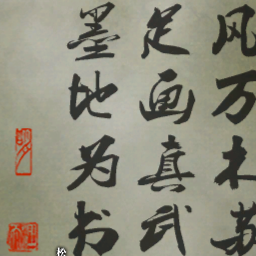 风万木苏
足画真武
墨地为书
松